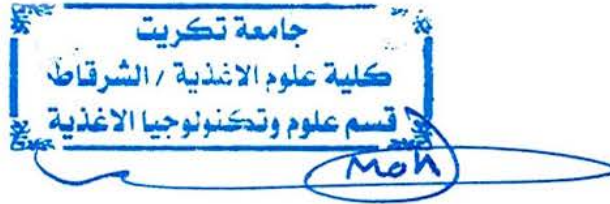 جامعة تكريت
كلية علوم الاغذية / الشرقاط
قسم علوم وتكنولوجيا الاغذية
Moh